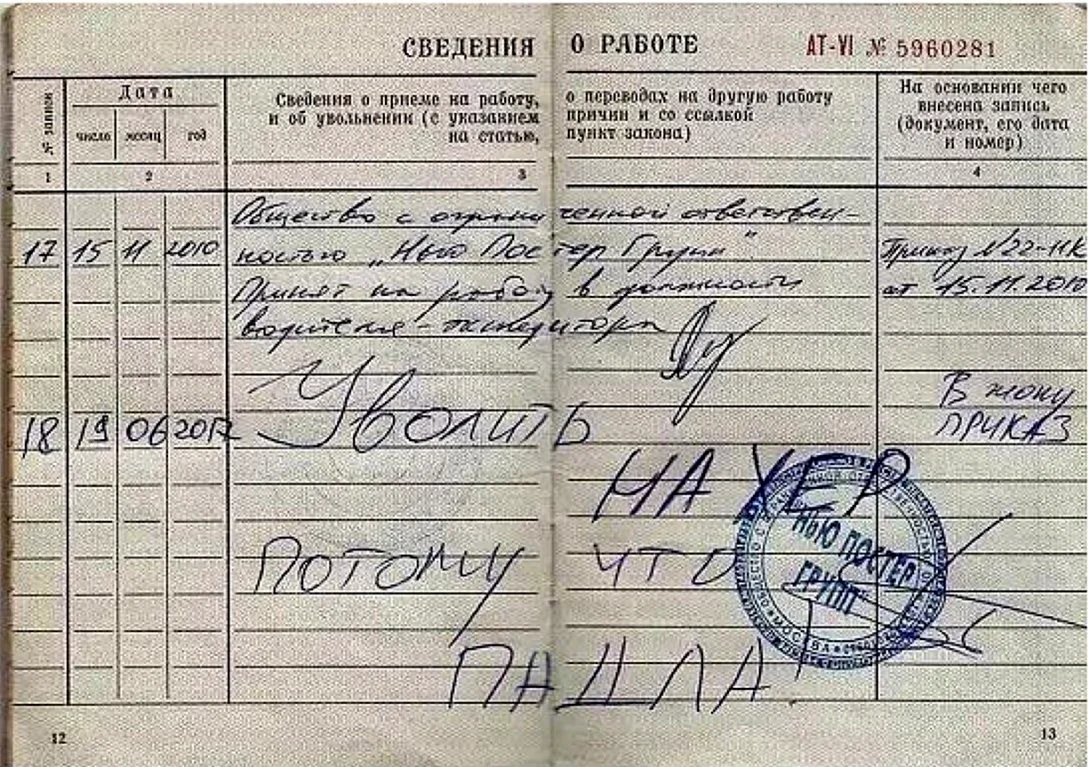 СВЕДЕНИЯ О РАБОТЕ АТ-VI № 5960281
№ записи
Дата
число месяц год
Сведения о приеме на работу, о переводах на другую работу
и об увольнении (с указанием причин и со ссылкой
на статью, пункт закона)
На основании чего
внесена запись
(документ, его дата
и номер)
1 2 3 4
Общество с ограниченной ответствен-
17 15 11 2010 ностью „Нью Постер Групп" Приказ №22-11К
Принят на работу в должности от 15.11.2010
водителя-экспедитора
В жопу
18 19 06 2012 Уволить ПРИКАЗ
НА ХЕР
ПОТОМУ ЧТО
ПАДЛА
НЬЮ ПОСТЕР
ГРУПП
МОСКВА
12 13